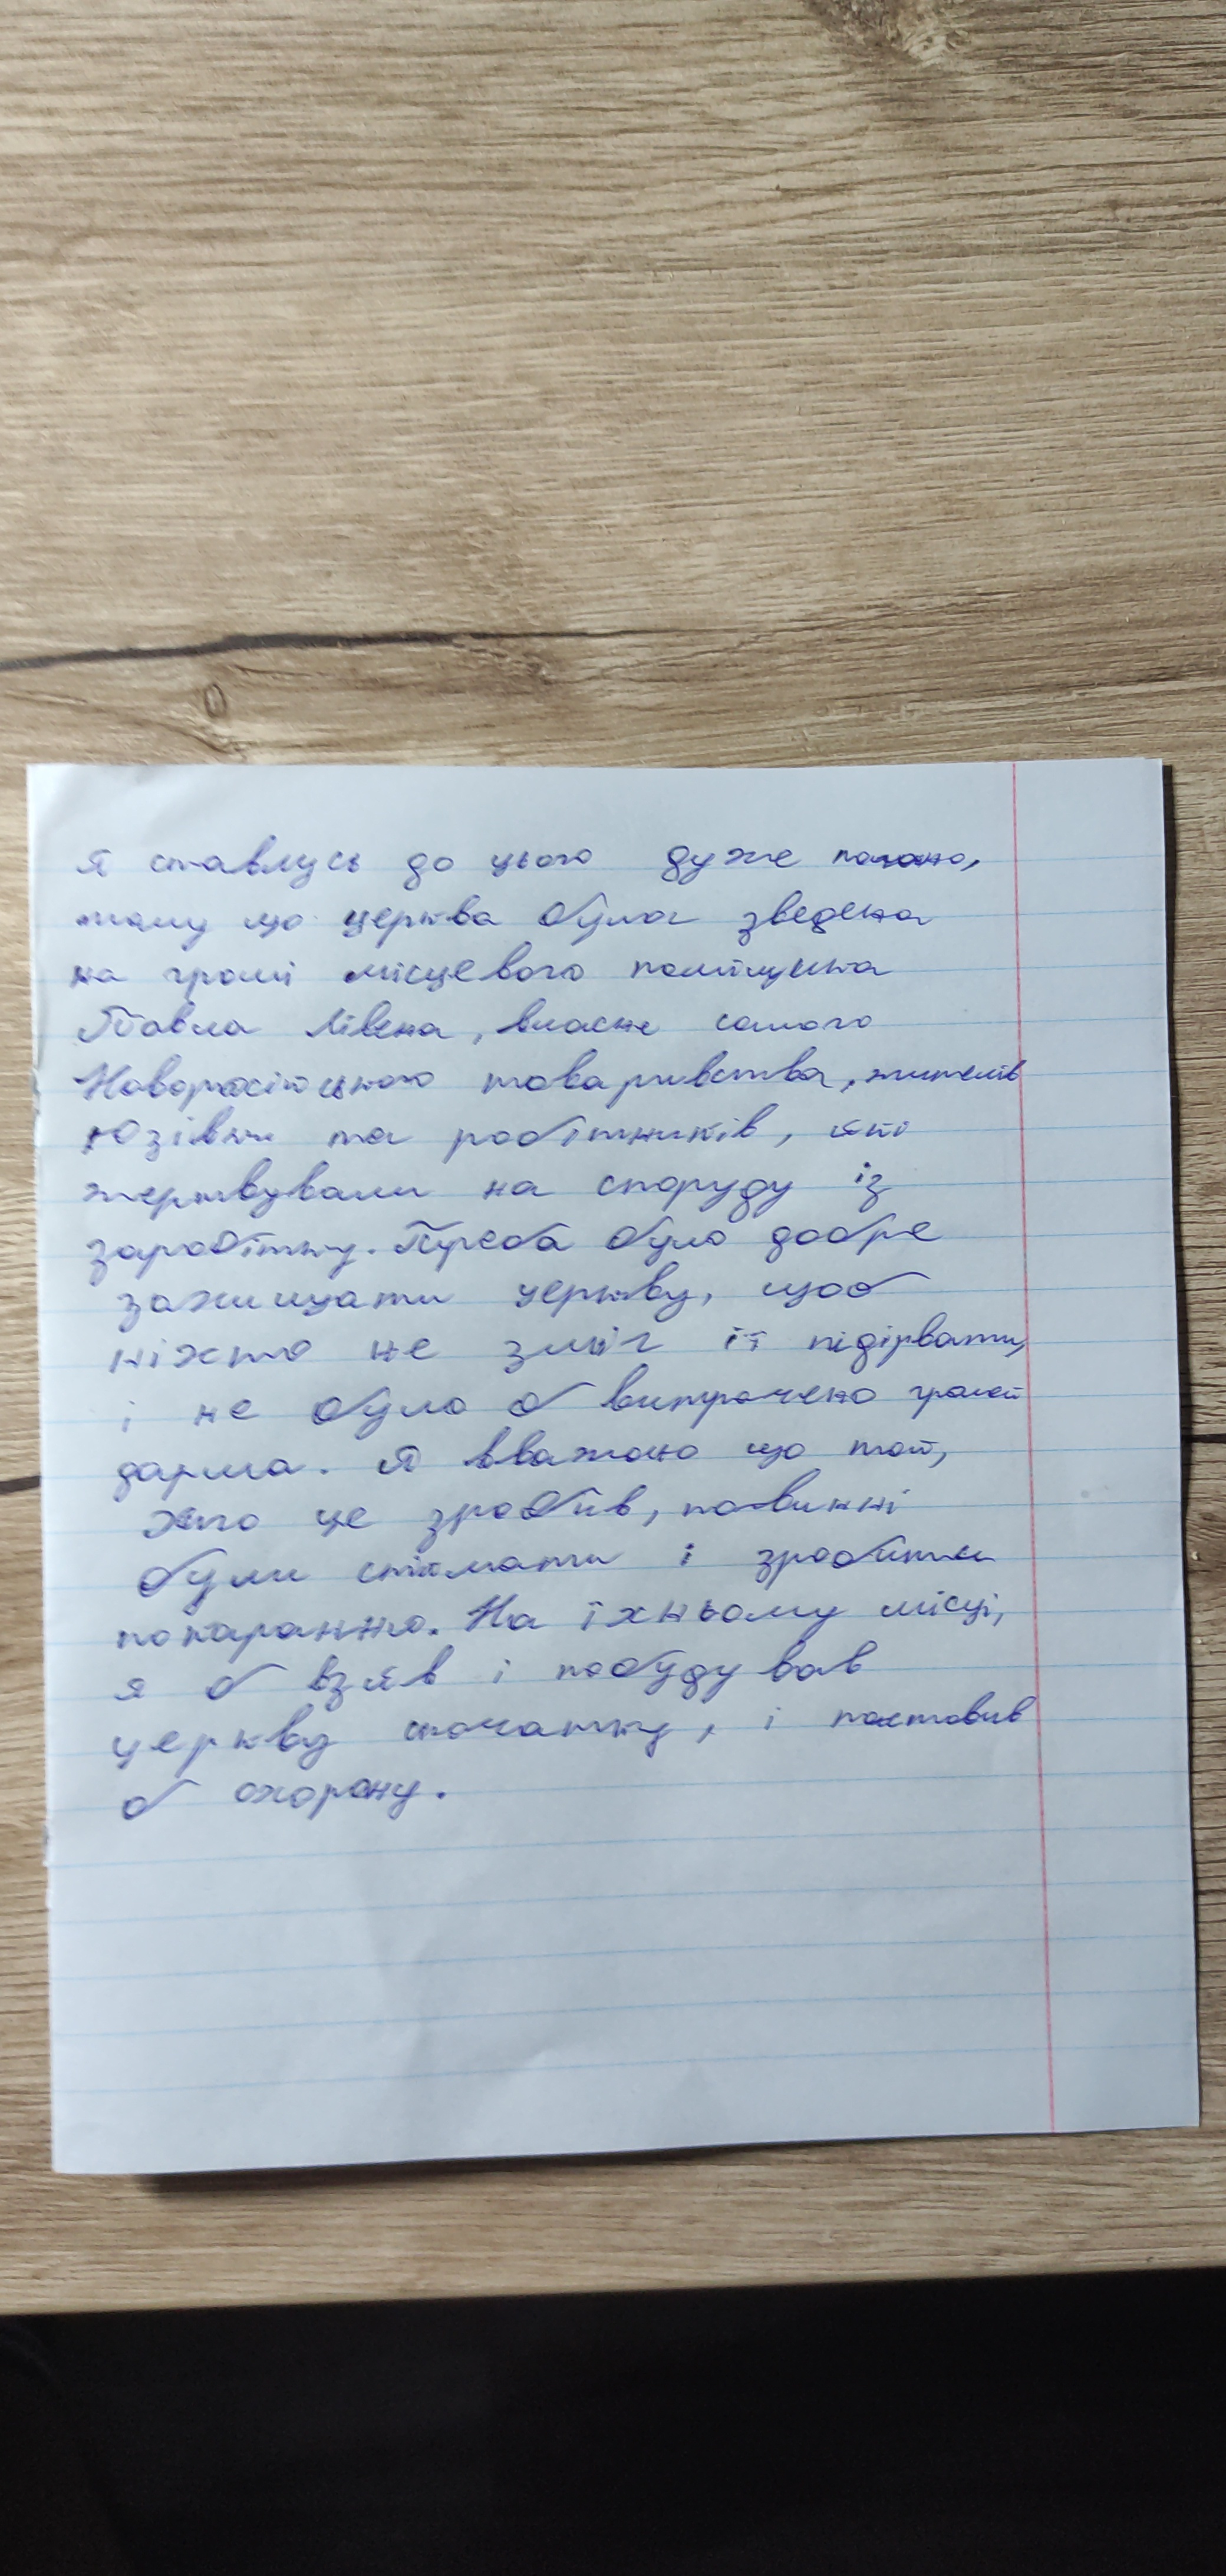 Я ставлусь до цього дуже погано,
тому що церква була зведена
на гроші місцевого поміщика
Павла Лівена, власне самого
Новоросійського товариства, жителів
Юзівки та робітників, які
жертвували на споруду із
заробітку. Треба було добре
захищати церкву, щоб
ніхто не зміг її підірвати,
і не було б витрачено грошей
дарма. Я вважаю що той,
хто це зробив, повинні
були спіймати і зробити
покарання. На їхньому місці,
я б взяв і побудував
церкву спочатку, і поставив
б охорону.